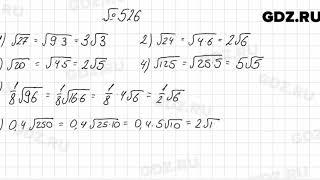 GDZ.RU
№526
) √27 = √9·3 = 3√3 2) √24 = √4·6 = 2√6
) √20 = √4·5 = 2√5 4) √125 = √25·5 = 5√5
) 1/8 √96 = 1/8 √16·6 = 1/8 · 4√6 = 1/2 √6
) 0,4√250 = 0,4√25·10 = 0,4·5√10 = 2√1
GDZ.RU